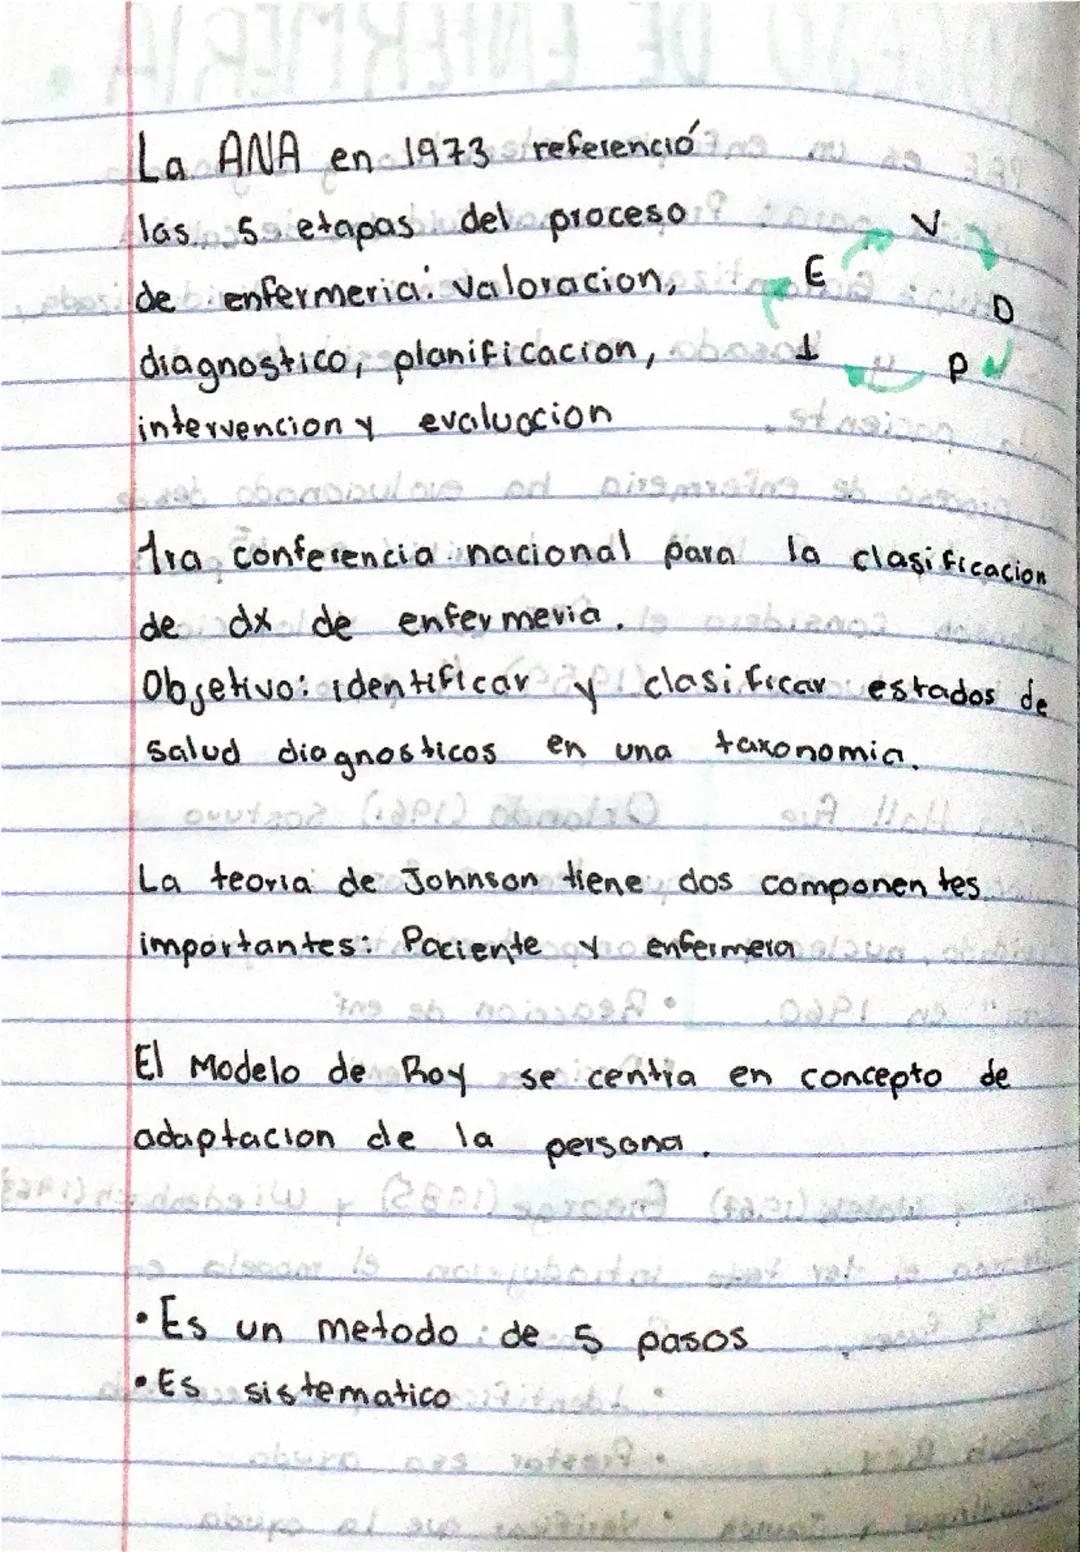 La ANA en 1973 referenció
las 5 etapas del proceso
de enfermeria: valoracion,
diagnostico, planificacion,
intervencion y evaluacion
V
D
P
I
E
1ra conferencia nacional para la clasificacion
de dx de enfermeria.
Objetivo: identificar y clasificar estados de
salud diagnosticos en una taxonomia.
La teoria de Johnson tiene dos componentes
importantes: Paciente y enfermera
El Modelo de Roy se centra en concepto de
adaptacion de la persona.
• Es un metodo de 5 pasos
• Es sistematico